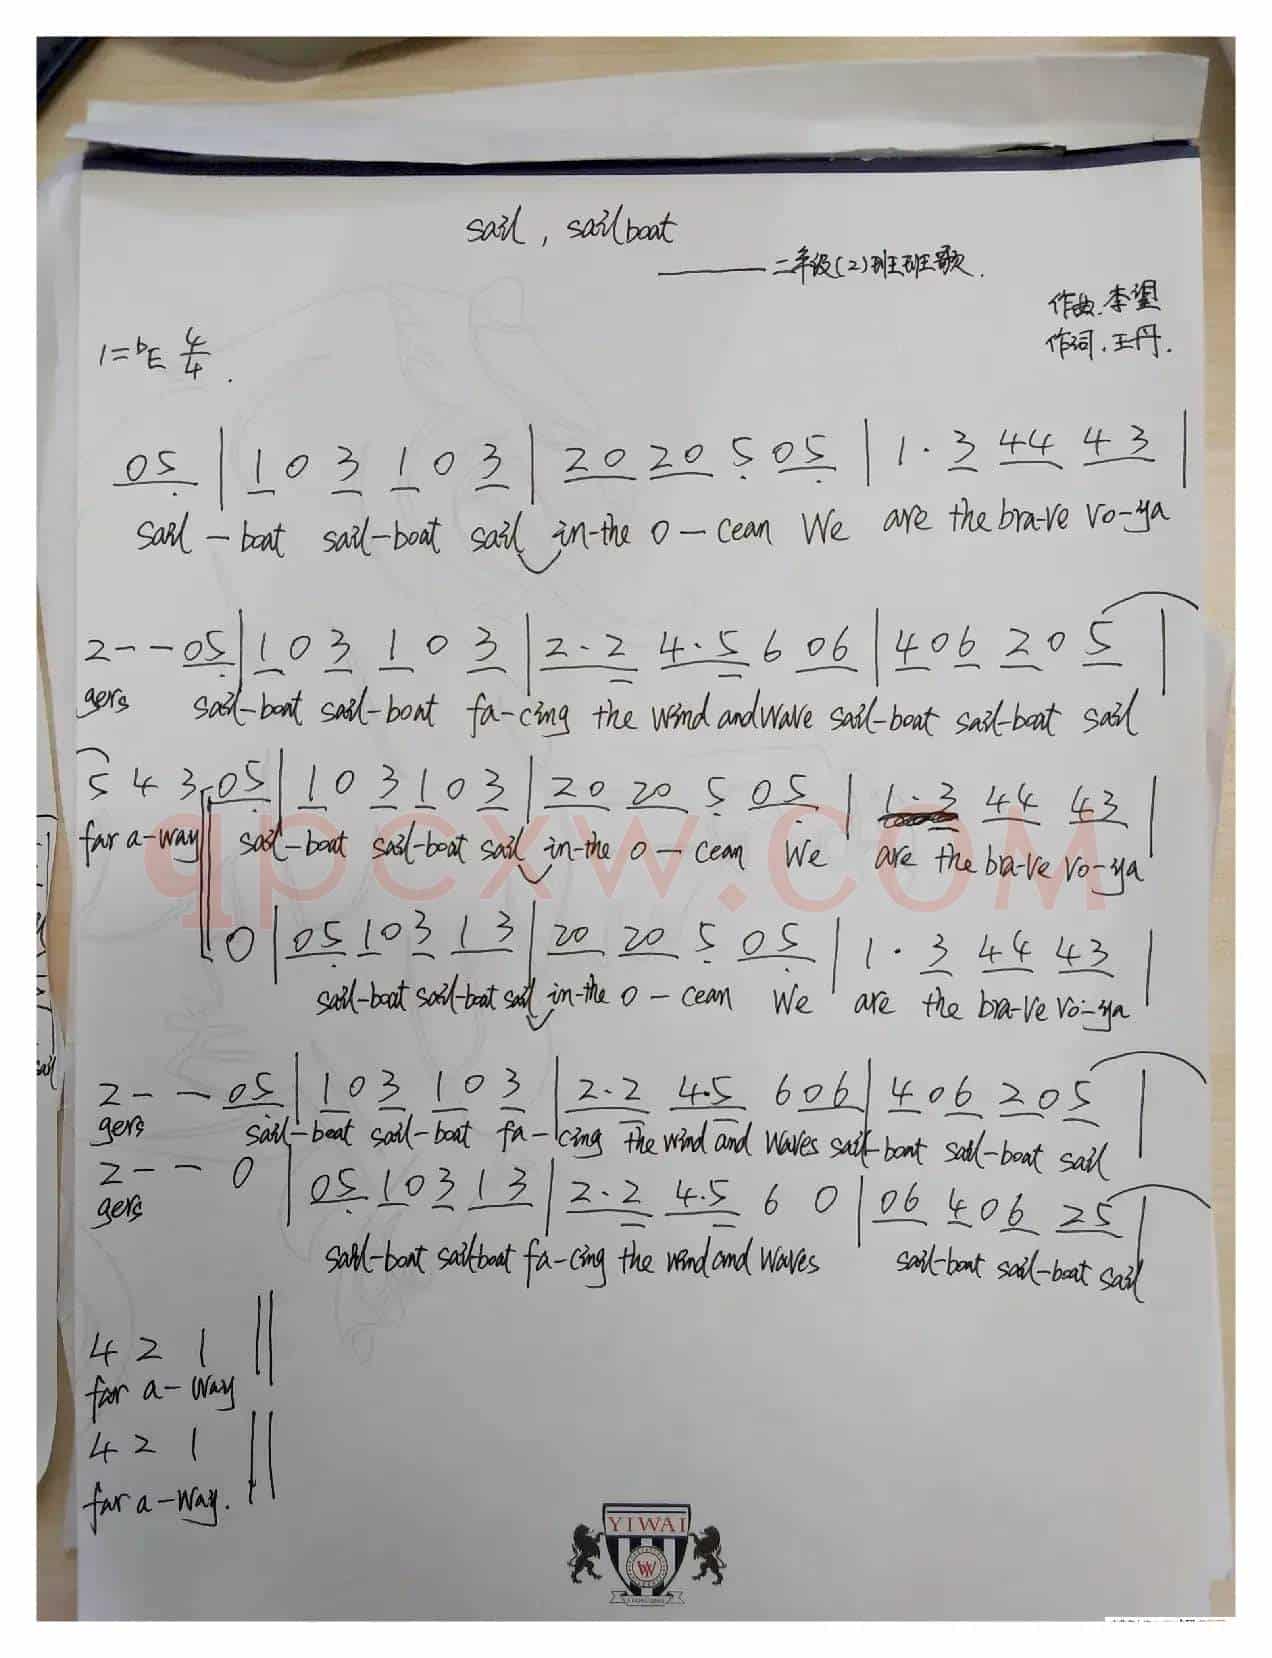 sail, sailboat
——— 二年级(2)班班歌.
作曲.李望
作词.王丹.
1=bE 4/4.
05 | 1 0 3 1 0 3 | 20 20 5 05 | 1. 3 44 43 |
sail-boat sail-boat sail in-the o-cean We are the bra-ve vo-ya
2 - - 05 | 1 0 3 1 0 3 | 2.2 4.5 6 06 | 406 205 |
gers sail-boat sail-boat fa-cing the wind and wave sail-boat sail-boat sail
5 4 3 05 | 1 0 3 1 0 3 | 20 20 5 05 | 1.3 44 43 |
far a-way sail-boat sail-boat sail in-the o-cean We are the bra-ve vo-ya
0 | 05 103 13 | 20 20 5 05 | 1. 3 44 43 |
sail-boat sail-boat sail in-the o-cean We are the bra-ve vo-ya
2 - - 05 | 1 0 3 1 0 3 | 2.2 4.5 606 | 406 205 |
gers sail-boat sail-boat fa-cing the wind and waves sail-boat sail-boat sail
2 - - 0 | 05 103 13 | 2.2 4.5 6 0 | 06 406 25 |
gers sail-boat sailboat fa-cing the wind and waves sail-boat sail-boat sail
4 2 1 ||
far a-way
4 2 1 ||
far a-way.
qpcxw.com
YIWAI